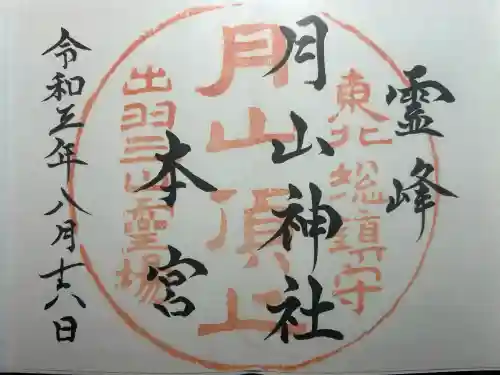 霊峰
月山神社
本宮
令和五年八月十六日
東北総鎮守
月山頂上
出羽三山霊場